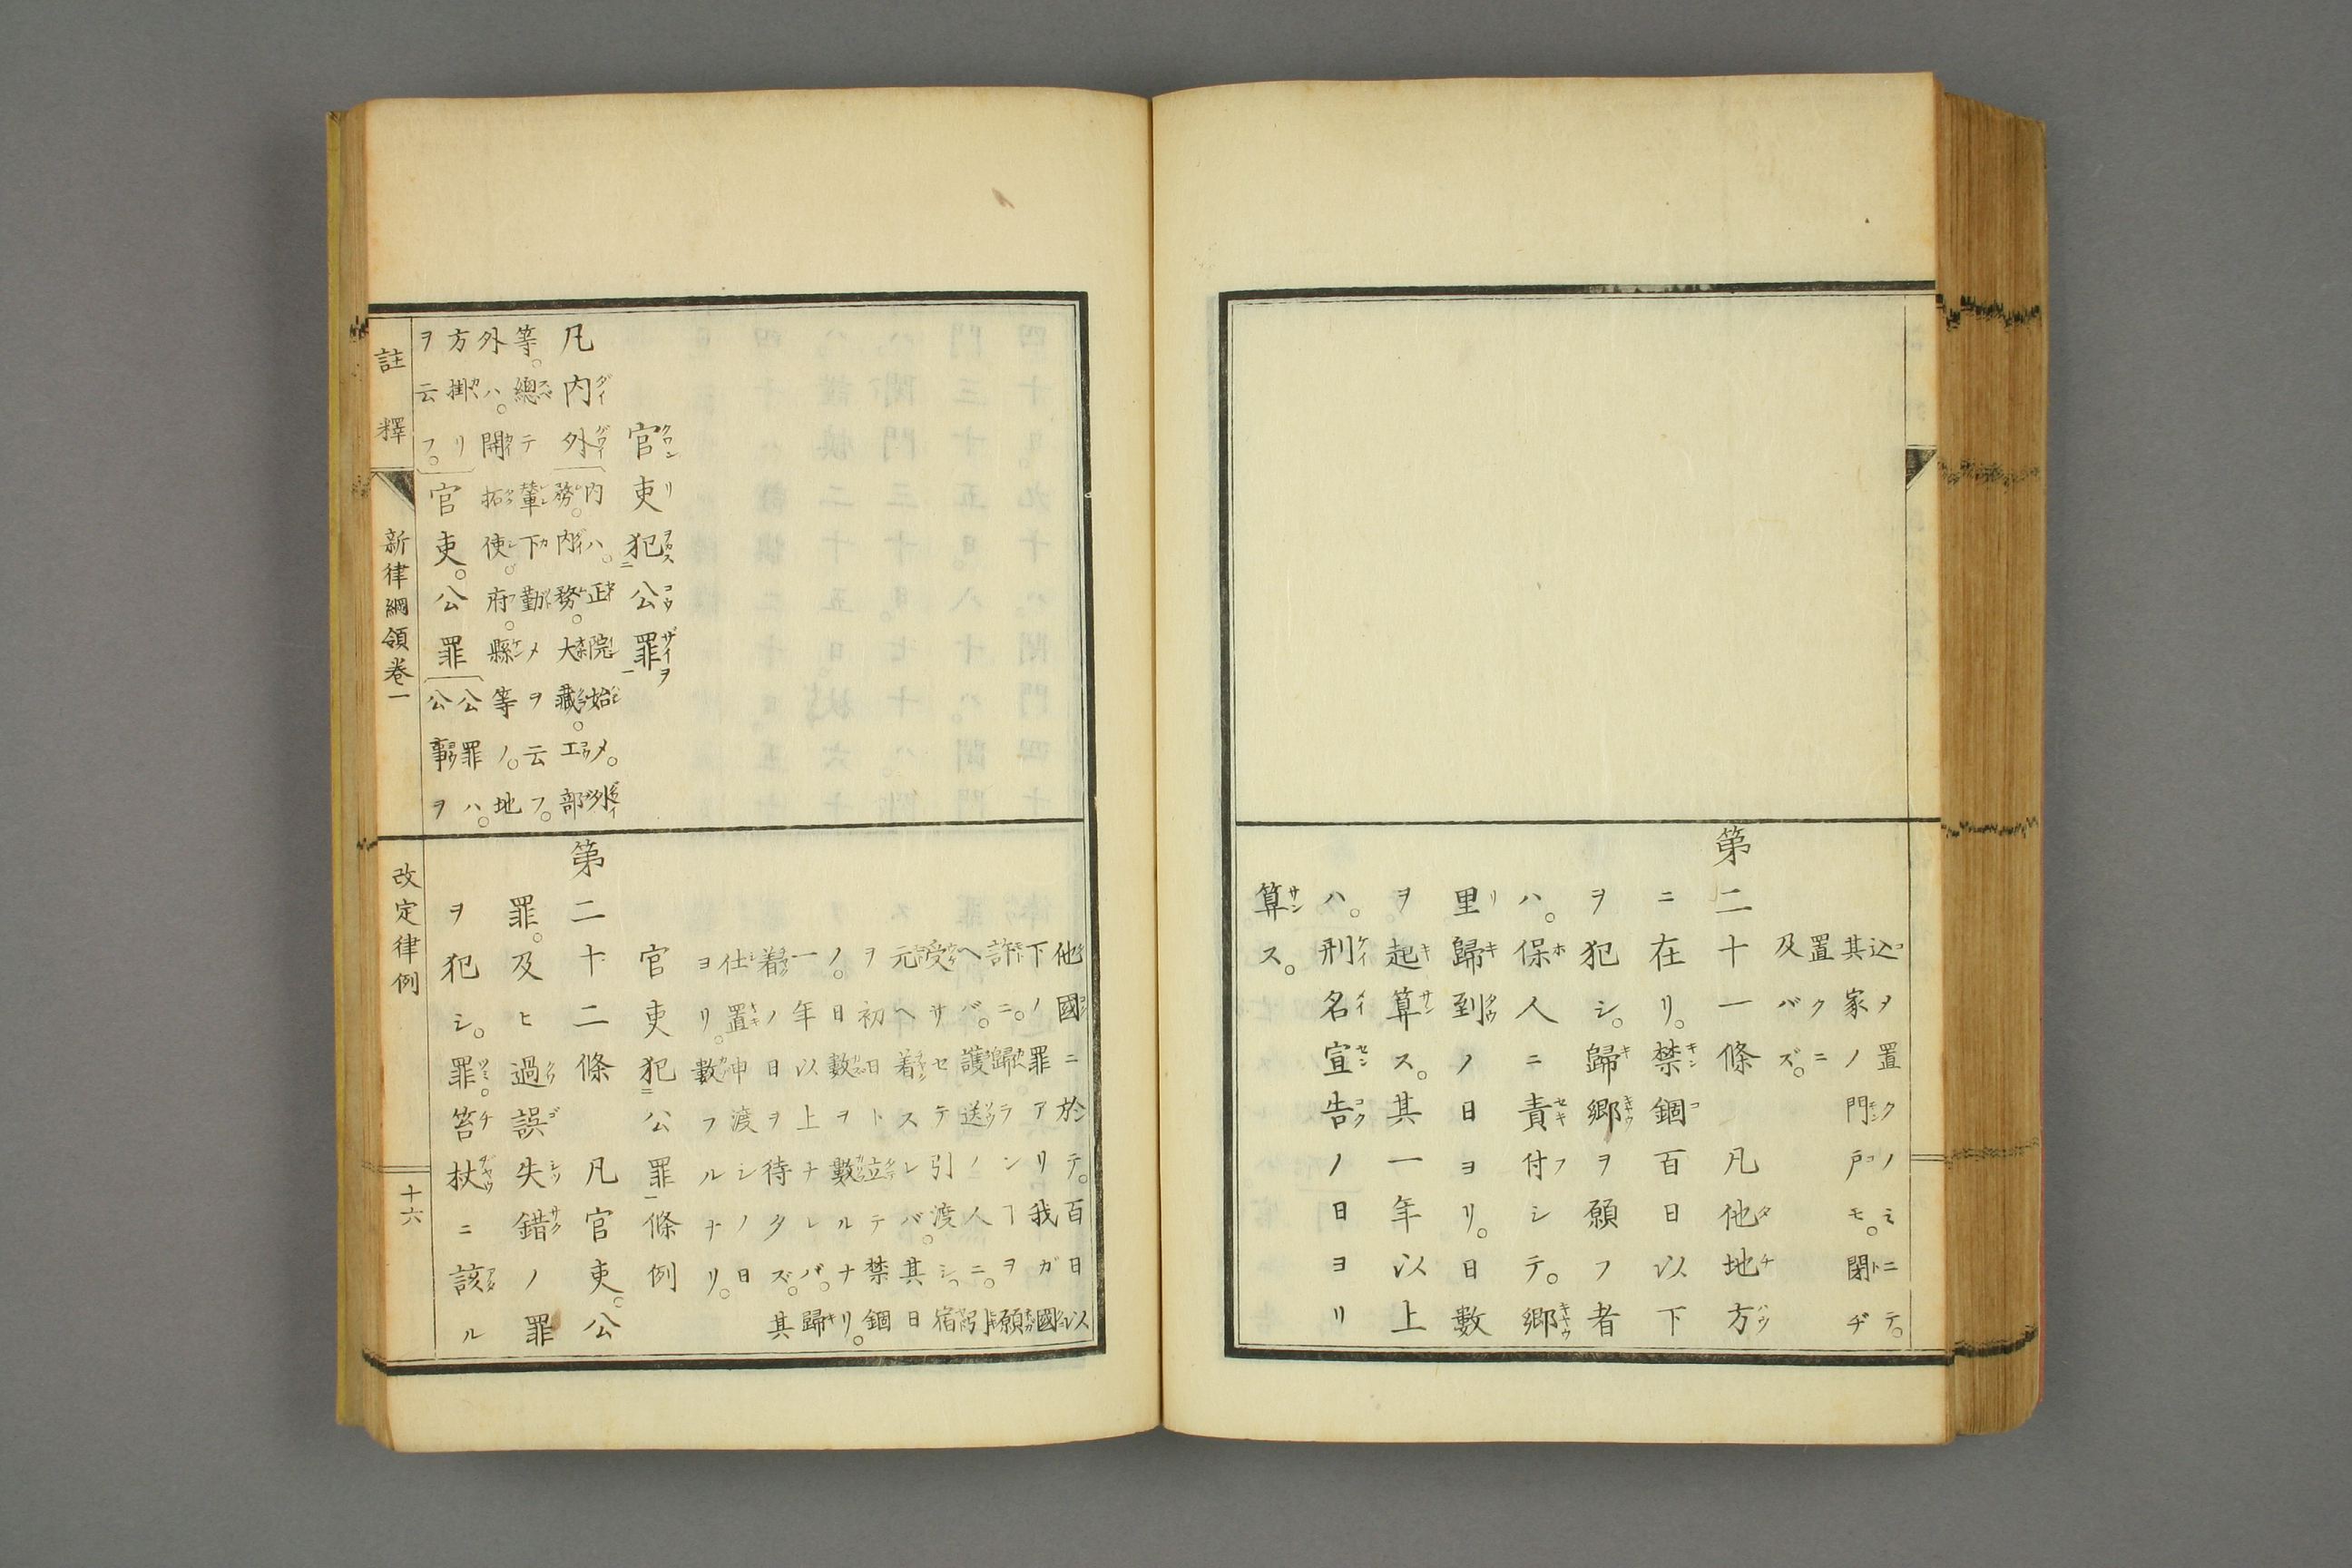 込ヲ置クノミニテ。
其家ノ門戸モ。閉ヂ
置クニ
及バズ。
第二十一條 凡他地方
ニ在リ。禁錮百日以下
ヲ犯シ。歸郷ヲ願フ者
ハ。保人ニ責付シテ。郷
里歸到ノ日ヨリ。日數
ヲ起算ス。其一年以上
ハ。刑名宣告ノ日ヨリ
算ス。
官吏犯公罪
凡内外
内ハ。正院始メ。外
務。内務。大藏。工部
等。總テ輦下勤メヲ云フ。
外ハ。開拓使。府。縣等ノ。地
方掛リ
ヲ云フ。
官吏。公罪
公罪ハ。
公事ヲ
他國ニ於テ。百日以
下ノ罪アリ我ガ國
許ニ。歸ランヿヲ願
ヘバ。護送ノ人ニ。引
受サセテ引渡シ。宿
元ヘ着スレバ。其日
ヲ初日ト立テ禁錮
ノ。日數ヲ數ルナリ。
一年以上ナレバ。歸
着ノ日ヲ待タズ。其
仕置申渡シノ日
ヨリ。數フルナリ。
官吏犯公罪條例
第二十二條 凡官吏。公
罪。及ヒ過誤失錯ノ罪
ヲ犯シ。罪。笞杖ニ該ル
註釋 新律綱領卷一 改定律例 十六